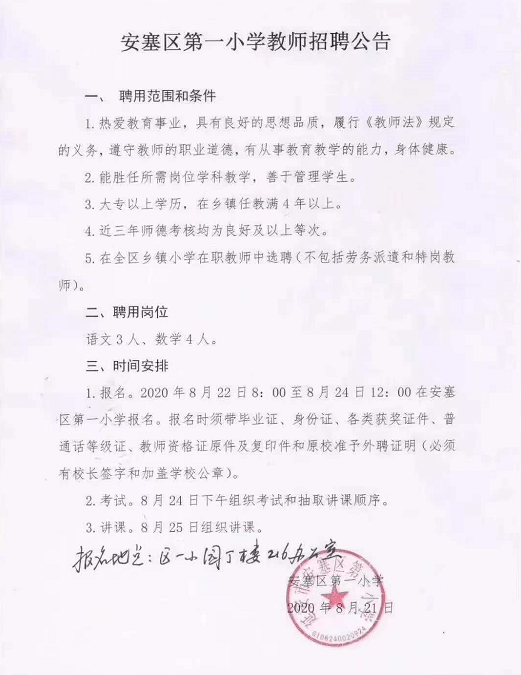 安塞区第一小学教师招聘公告
一、 聘用范围和条件
1.热爱教育事业，具有良好的思想品质，履行《教师法》规定
的义务，遵守教师的职业道德，有从事教育教学的能力，身体健康。
2.能胜任所需岗位学科教学，善于管理学生。
3.大专以上学历，在乡镇任教满4年以上。
4.近三年师德考核均为良好及以上等次。
5.在全区乡镇小学在职教师中选聘(不包括劳务派遣和特岗教
师)。
二、聘用岗位
语文3人、数学4人。
三、时间安排
1.报名。2020年8月22日8：00至8月24日12：00在安塞
区第一小学报名。报名时须带毕业证、身份证、各类获奖证件、普
通话等级证、教师资格证原件及复印件和原校准予外聘证明(必须
有校长签字和加盖学校公章)。
2.考试。8月24日下午组织考试和抽取讲课顺序。
3.讲课。8月25日组织讲课。
报名地点：区一小园丁楼216办公室
安塞区第一小学
2020年8月21日
延安市安塞区第一小学
6106240020924